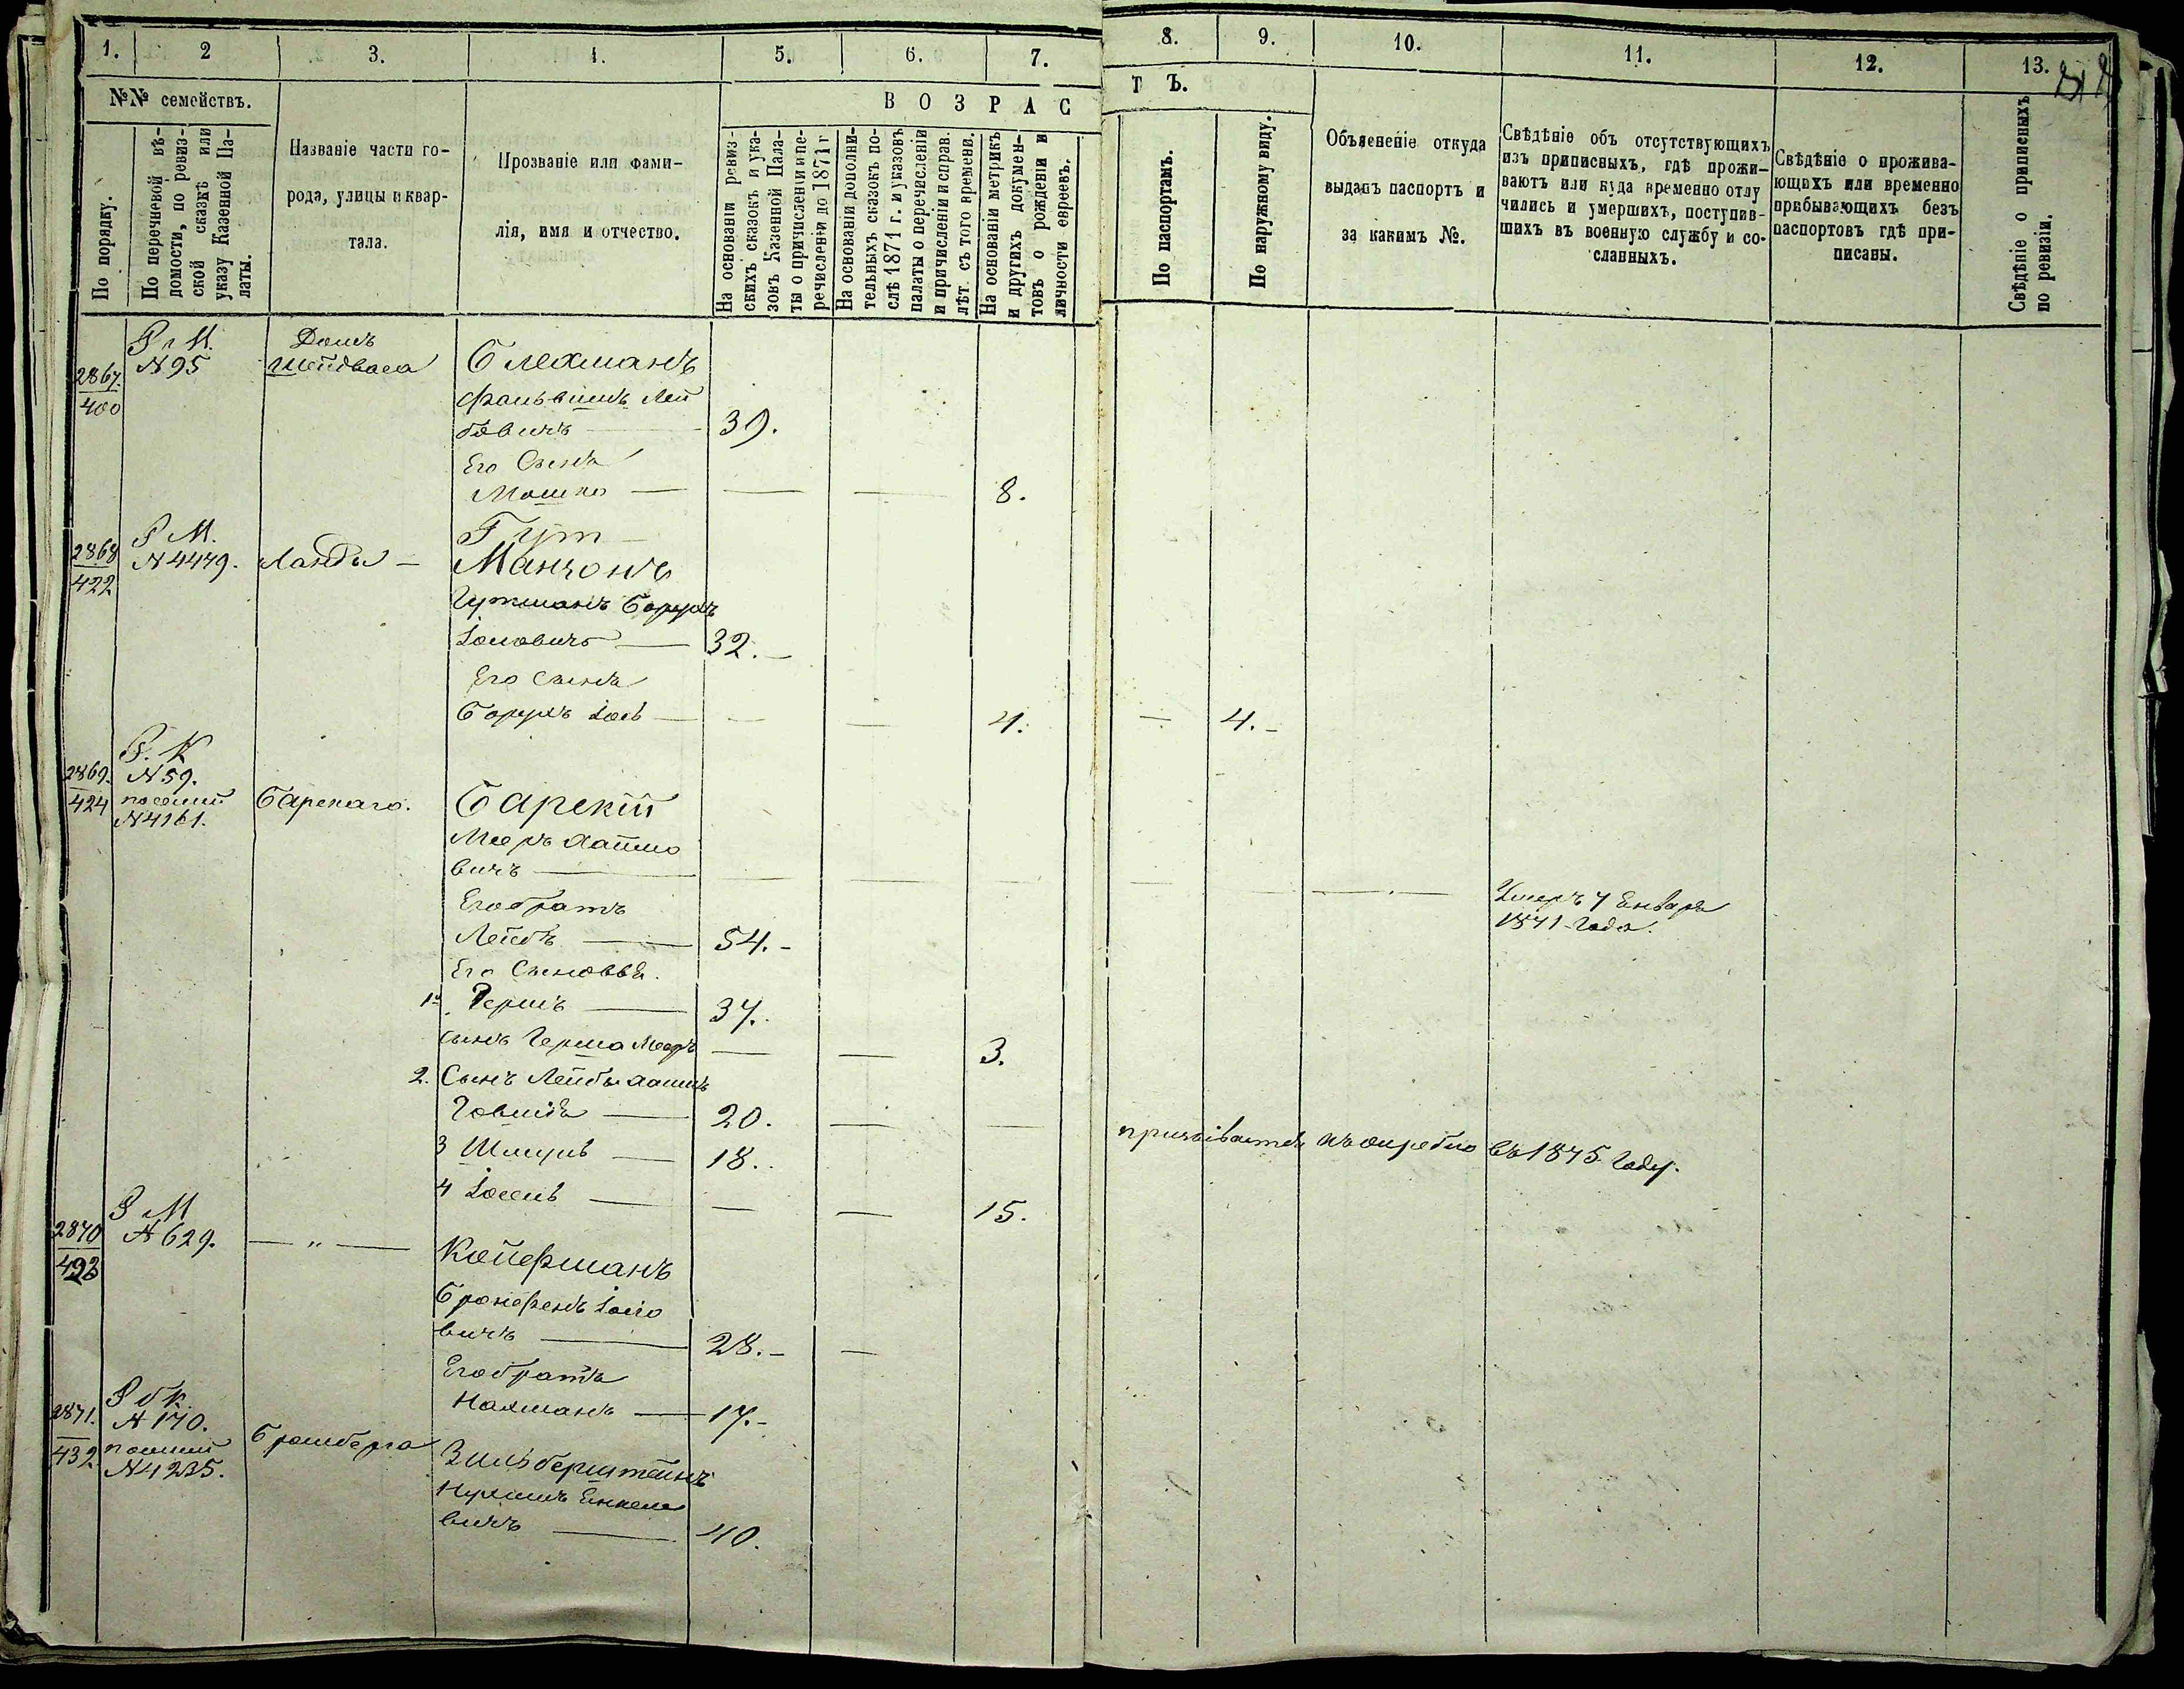 1. 2 3. 4. 5. 6. 7. 8. 9. 10. 11. 12. 13.
№№ семействъ.
ВОЗРАСТЪ.
По порядку.
По перечневой вѣ-
домости, по ревиз-
ской сказкѣ или
указу Казенной Па-
латы.
Названіе части го-
рода, улицы и квар-
тала.
Прозваніе или фами-
лія, имя и отчество.
На основаніи ревиз-
скихъ сказокъ и ука-
зовъ Казенной Пала-
ты о причисленіи и пе-
речисленіи до 1871 г
На основаніи дополни-
тельныхъ сказокъ по-
слѣ 1871 г. и указовъ
палаты о перечисленіи
и причисленіи и справ.
лѣт. съ того времени.
На основаніи метрикъ
и другихъ докумен-
товъ о рожденіи и
личности евреевъ.
По паспортамъ.
По наружному виду.
Объясненіе откуда
выданъ паспортъ и
за какимъ №.
Свѣдѣніе объ отсутствующихъ
изъ приписныхъ, гдѣ прожи-
ваютъ или куда временно отлу
чились и умершихъ, поступив-
шихъ въ военную службу и со-
сланныхъ.
Свѣдѣніе о прожива-
ющихъ или временно
пребывающихъ безъ
паспортовъ гдѣ при-
писаны.
Свѣдѣніе о приписныхъ
по ревизіи.
2867. 400
Р М. N 95
Домъ
Шейдваса
Блехманъ
Фальвишъ Лей
бовичъ — 39.
Его Сынъ
Мошко — — — 8.
2868 422
Р М. N 4479.
Ланды —
Гут —
Манзонъ
Гутманъ Борухъ
Іосіовичъ — 32. —
Его Сынъ
Борухъ Іось — — — 4. — 4. —
2869. 424
Р. К N 59.
посемей
N 4161.
Барскаго.
Барскій
Мееръ Хаимо
вичъ — — — — — — —
Умеръ 7 Января
1871 Года.
Его братъ
Лейбъ — 54. —
Его Сыновья.
1й Гершъ — 37.
Сынъ Герша Мееръ — — 3.
2. Сынъ Лейбы Хаимъ
Говшія — 20. — —
3 Шмуль — 18.
призывается къ жеребью въ 1875 году.
4 Іосель — — — 15.
2870 493
Р М N 629.
— " —
Койферманъ
Бронфенъ Іосіо
вичъ — 28. — —
Его братъ
Нахманъ — 17. —
2871. 432
Р б К. N 170.
посемей
N 4235.
Бромберга
Зильберштейнъ
Нухимъ Енкеле
вичъ — 40.